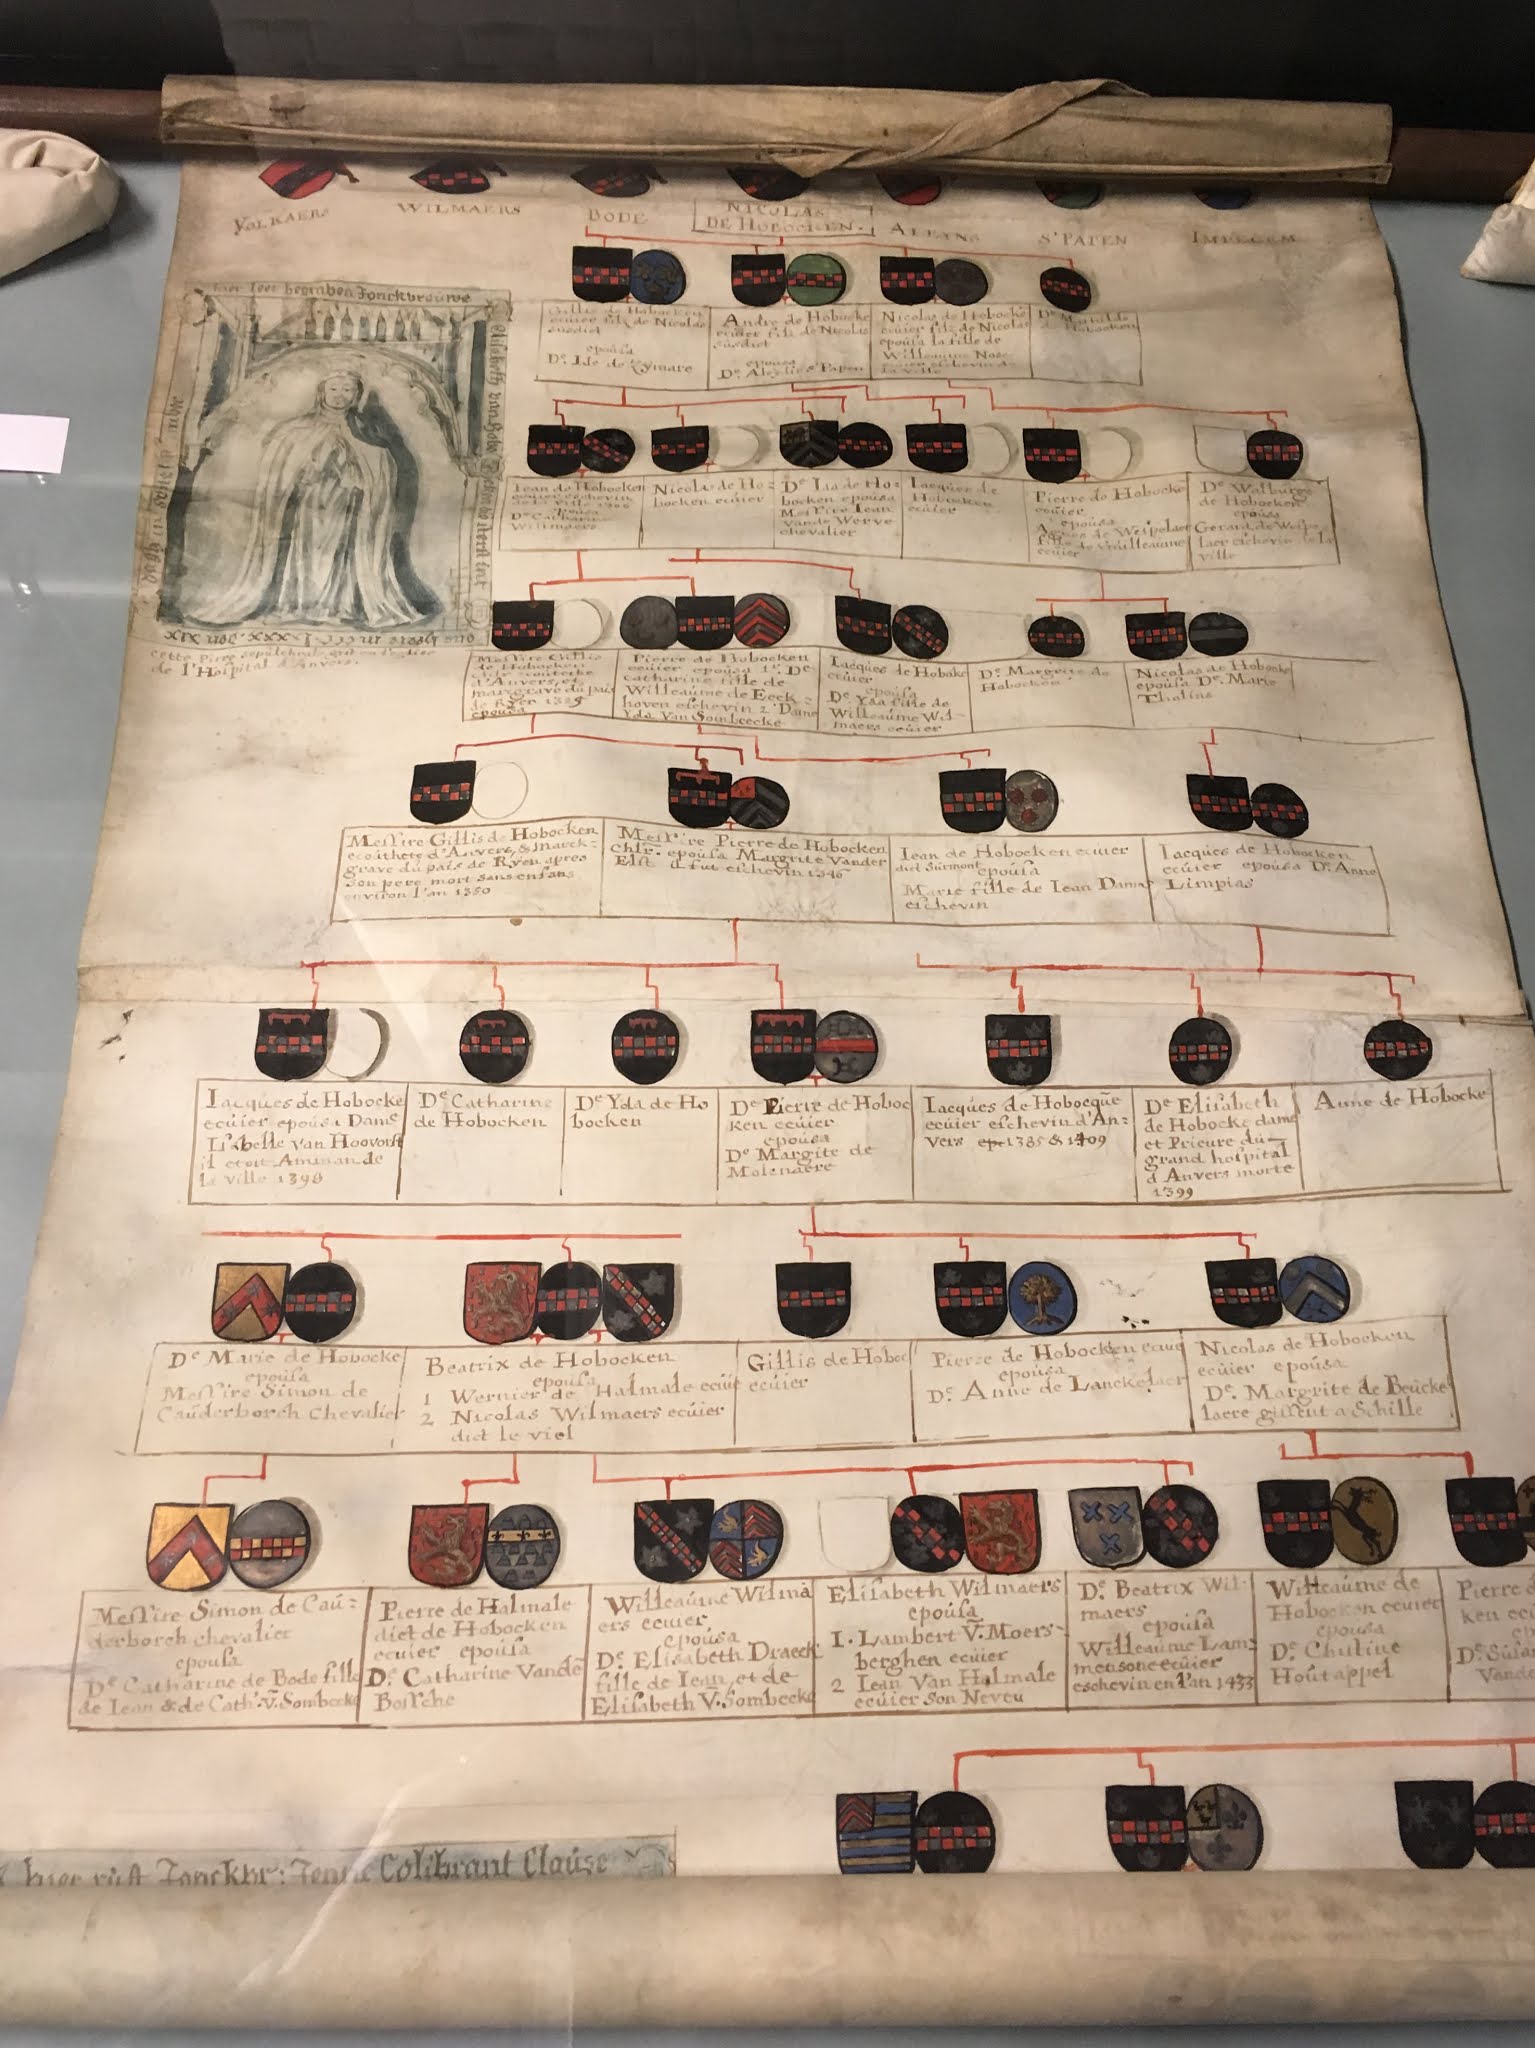 VOLKAERS
WILMAERS
BODE
NICOLAS
DE HOBOCKEN.
ALEYNS
S'PATEN
IMPEGEM
hier leet begraben Jonckvrouwe
Gillis de Hobocken
ecuier filz de Nicolas
susdict
epousa
De. Ide de
Andre de Hobocke
ecuier filz de Nicolas
susdict
epousa
De.
Nicolas de Hobocke
ecuier filz de Nicolas
epousa la fille de
Willeaume Nose
ecuier eschevin de
la ville
De
de Hobocken
Iean de Hobocken
ecuier eschevin
epousa
De Catharine
Willmaers
Nicolas de Ho=
bocken ecuier
De Ida de Ho=
bocken epousa
Messire Iean
vande Werve
chevalier
Iacques de
Hobocken
ecuier
Pierre de Hobocke
ecuier
epousa
Agnes de Wespelaer
fille de Willeaume
ecuier
De Walburge
de Hobocken
epousa
Gerard de Wespe
laer eschevin de la
ville
cette Pirre sepulchrale git en l'eglise
de l'Hospital d'Anvers.
Messire Gillis
de Hobocken
d'Anvers, et
margrave du pais
de Ryen 1325
epousa
Pierre de Hobocken
ecuier epousa 1r. De
Catharine fille de
Willeaume de Eeck=
hoven eschevin 2 Dame
Yda Van Sombeecke
Iacques de Hoboke
ecuier
epousa
De Yda fille de
Willeaume Wil=
maers ecuier
De. Margrite de
Hobocken
Nicolas de Hobocke
epousa De. Marie
Tholins
Messire Gillis de Hobocken
ecouthete d'Anvers, & Marck=
grave du pais de Ryen apres
son pere mort sans enfans
environ l'an 1350
Messire Pierre de Hobocken
Chlr. epousa Margrite Vander
Elst il fut eschevin 1346
Iean de Hobocken ecuier
dict Surmont epousa
Marie fille de Iean Dams
eschevin
Iacques de Hobocken
ecuier epousa De. Anne
Limpias
Iacques de Hobocke
ecuier epousa Dame
Isabelle van Hoovorst
il etoit Amman de
la ville 1398
De Catharine
de Hobocken
De Yda de Ho
bocken
De Pierre de Hoboc
ken ecuier
epousa
De Margite de
Molenaere
Iacques de Hobocque
ecuier eschevin d'An=
vers 1385 & 1409
De Elisabeth
de Hobocke dame
et Prieure du
grand hospital
d'Anvers morte
1399
Anne de Hobocke
De Marie de Hobocke
epousa
Messire Simon de
Cauderborch chevalier
Beatrix de Hobocken
epousa
1 Wernier de Halmale ecuie
2 Nicolas Wilmaers ecuier
dict le viel
Gillis de Hoboc
ecuier
Pierre de Hobocken ecuie
epousa
De. Anne de Lanckelaer
Nicolas de Hobocken
ecuier epousa
De. Margrite de Beucke
laere gissent a Schille
Messire Simon de Cau=
derborch chevalier
epousa
De Catharine de Bode fille
de Iean & de Cath. V. Sombecke
Pierre de Halmale
dict de Hobocken
ecuier epousa
De. Catharine Vande
Bossche
Willeaume Wilma
ers ecuier
epousa
De. Elisabeth Draeck
fille de Iean, et de
Elisabeth V. Sombecke
Elisabeth Wilmaers
epousa
1. Lambert V. Moers-
berghen ecuier
2 Iean Van Halmale
ecuier son Neveu
De. Beatrix Wil-
maers
epousa
Willeaume Lam=
mensone ecuier
eschevin en l'an 1433
Willeaume de
Hobocken ecuier
epousa
De. Chuline
Houtappel
Pierre
ken
De. Susan
Vande
hier rust Jonckvr: Jenne Colibrant Clause